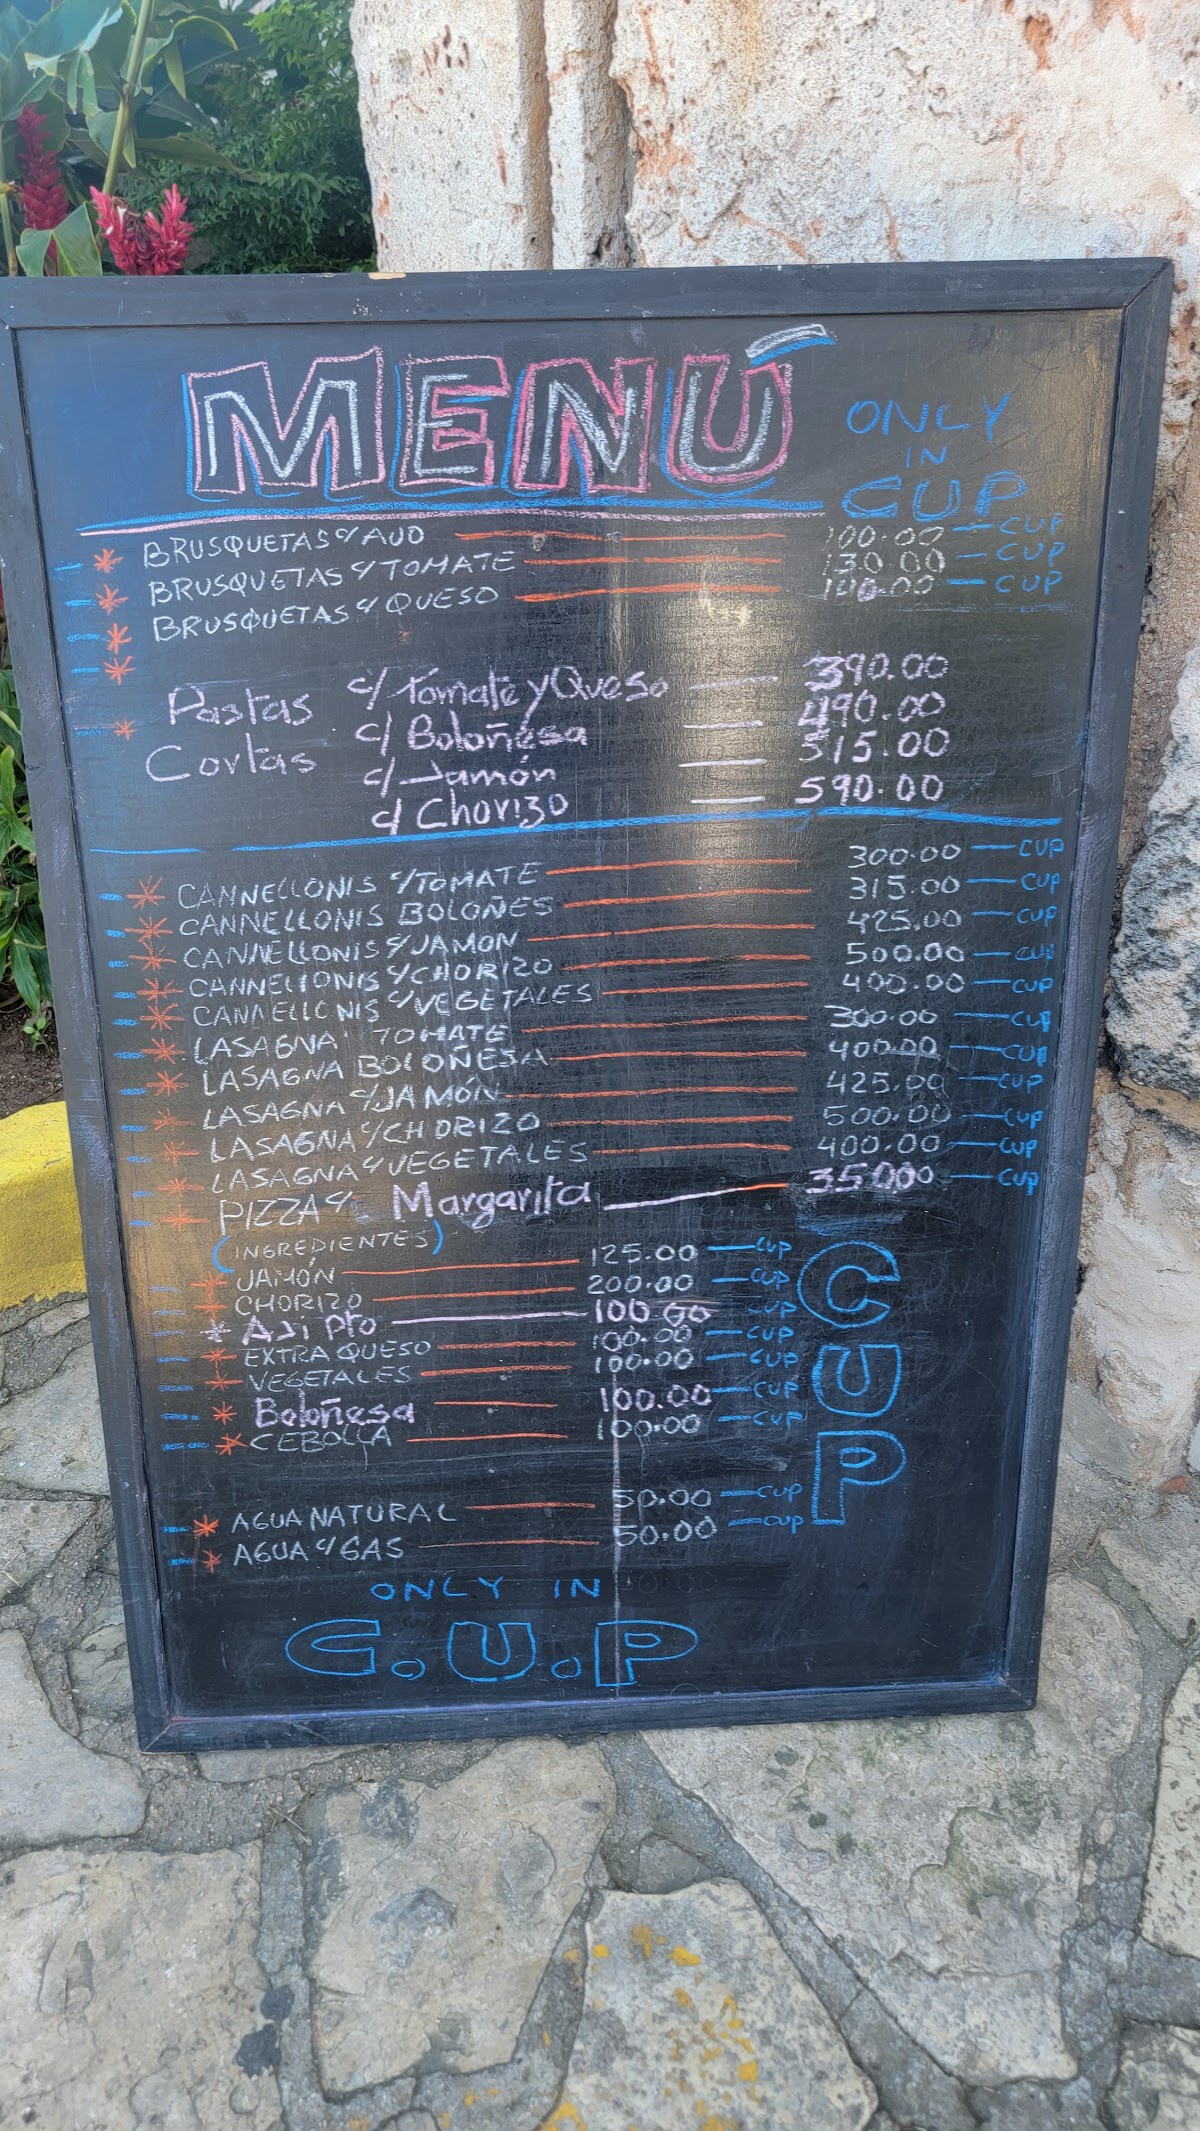 MENÚ
ONLY
IN
CUP
BRUSQUETAS c/ AJO 100.00 — CUP
BRUSQUETAS c/ TOMATE 130.00 — CUP
BRUSQUETAS c/ QUESO 140.00 — CUP
Pastas Cortas
c/ Tomate y Queso — 390.00
c/ Boloñesa — 490.00
c/ Jamón — 515.00
c/ Chorizo — 590.00
* CANNELLONIS c/ TOMATE 300.00 — CUP
* CANNELLONIS BOLOÑES 315.00 — CUP
* CANNELLONIS c/ JAMON 425.00 — CUP
* CANNELLONIS c/ CHORIZO 500.00 — CUP
* CANNELLONIS c/ VEGETALES 400.00 — CUP
* LASAGNA TOMATE 300.00 — CUP
* LASAGNA BOLOÑESA 400.00 — CUP
* LASAGNA c/ JAMÓN 425.00 — CUP
* LASAGNA c/ CHORIZO 500.00 — CUP
* LASAGNA c/ VEGETALES 400.00 — CUP
* PIZZA c/ Margarita 350.00 — CUP
(INGREDIENTES)
* JAMÓN 125.00 — CUP
* CHORIZO 200.00 — CUP
* Aji Pto 100.00 CUP
* EXTRA QUESO 100.00 — CUP
* VEGETALES 100.00 — CUP
* Boloñesa 100.00 — CUP
* CEBOLLA 100.00 — CUP
CUP
* AGUA NATURAL 50.00 — CUP
* AGUA c/ GAS 50.00 — CUP
ONLY IN
C.U.P